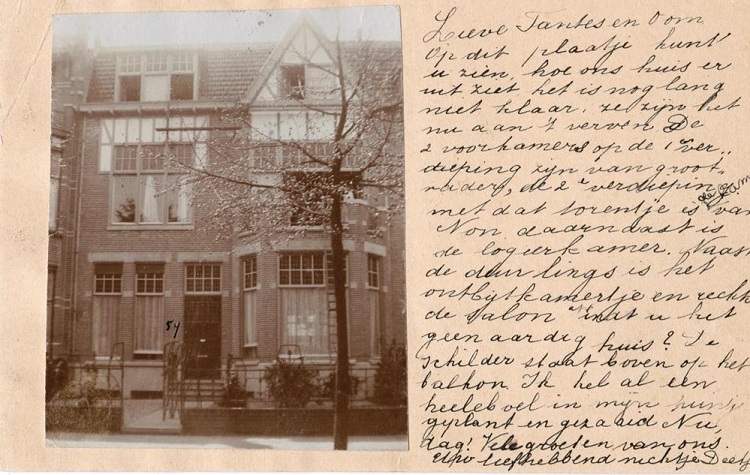 Lieve Tantes en Oom
Op dit plaatje kunt
u zien, hoe ons huis er
uit ziet, het is nog lang
niet klaar. ze zijn het
nu aan 't verven. De
2 voorkamers op de 1e ver-
dieping zijn van groot-
vader, de 2e verdieping
de kam
met dat torentje is van
Non daarnaast is
de logeerkamer. Naast
de deur links is het
ontbijtkamertje en rechts
de salon vindt u het
geen aardig huis? De
schilder staat boven op het
balkon. Ik heb al een
heeleboel in mijn tuintje
geplant en gezaaid Nu,
dag! Vele groeten van ons.
Uw liefhebbend nichtje
54